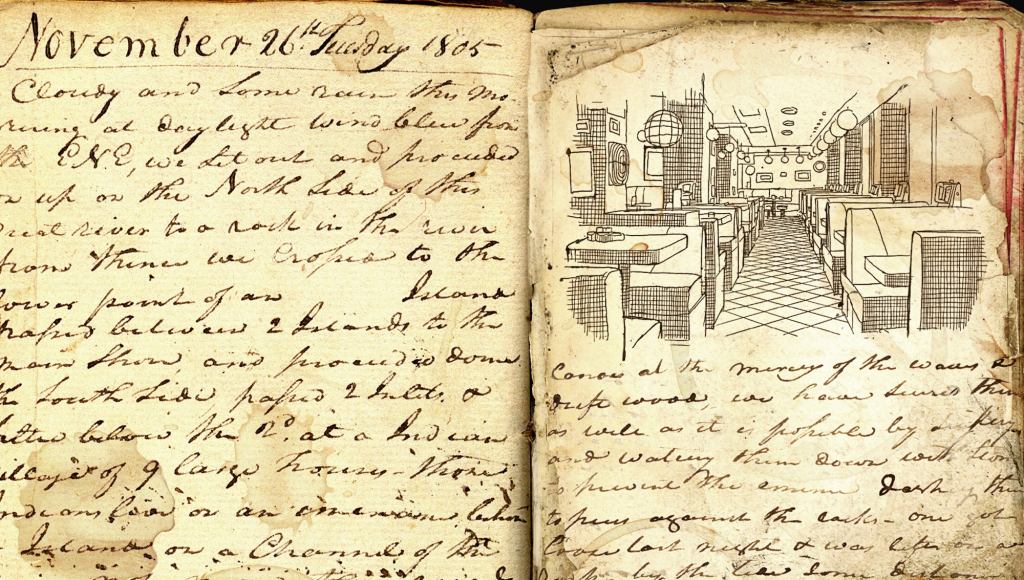 November 26th Tuesday 1805
Cloudy and Some rain this mo-
rning at daylight wind blew from
ENE, we Set out and proceeded
on up on the North Side of this
great river to a rock in the river
from thence we Crossed to the
lower point of an Island
passed between 2 Islands to the
main Shore, and proceeded down
the South Side, passed 2 Inlets &
below the 2d. at a Indian
village of 9 large houses - those
Indians live on an
Island, on a Channel of
Canoes at the mercy of the waves &
drift wood, we have Scured them
as well as it is possible by
and them down with
to prevent the dashing them
to pices against the rocks - one got
loose last night & was left on a
by the tide Some